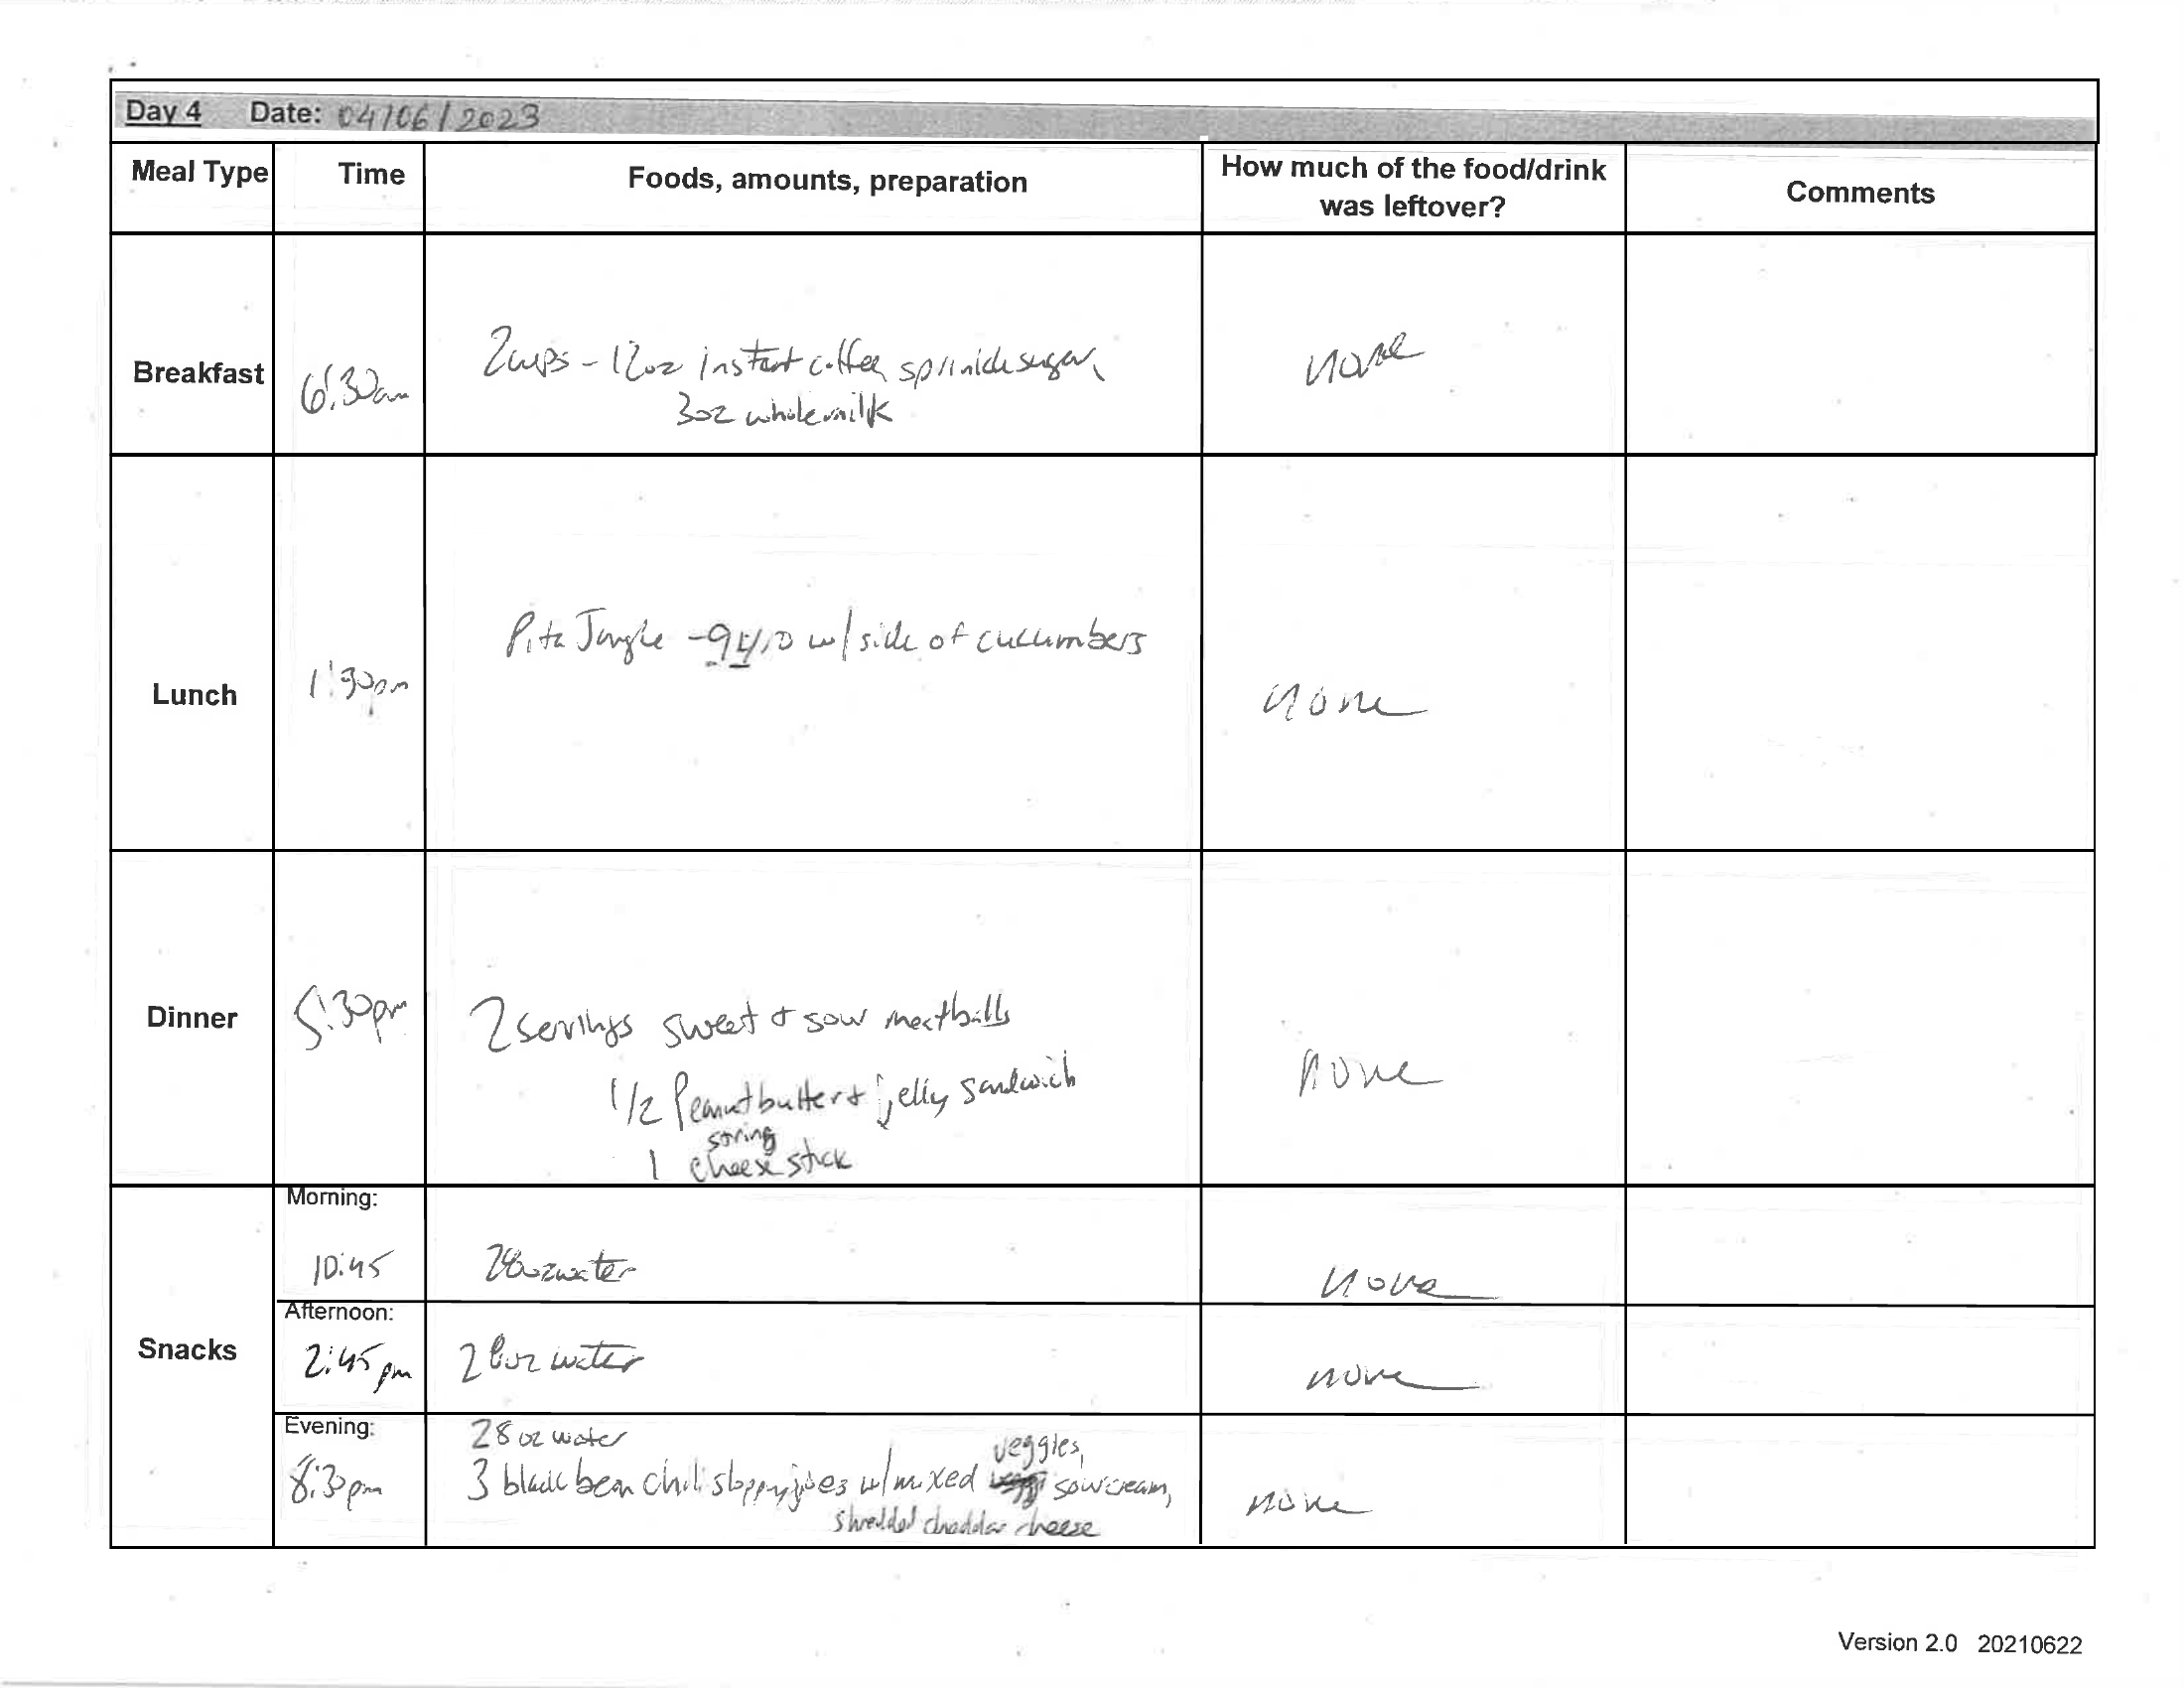 Day 4 Date: 04/06/2023
Meal Type Time Foods, amounts, preparation How much of the food/drink was leftover? Comments
Breakfast 6:30am 2cups - 12oz instant coffee, sprinkle sugar, none
3oz whole milk
Lunch 1:30pm Pita Jungle - w/ side of cucumbers none
Dinner 5:30pm 2 servings sweet + sour meatballs none
1/2 Peanut butter + jelly sandwich
1 string cheese stick
Snacks
Morning:
10:45 28oz water none
Afternoon:
2:45pm 28oz water none
Evening:
8:30pm 28 oz water
3 black bean chili sloppy joes w/ mixed veggies, sour cream, none
shredded cheddar cheese
Version 2.0 20210622